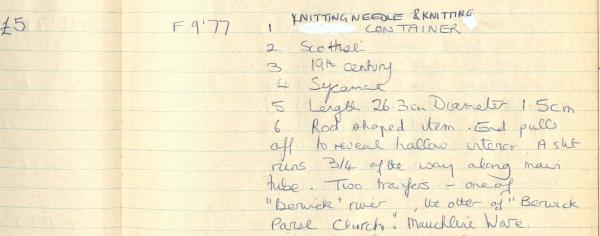 £5 F 9'77 1 KNITTING NEEDLE & KNITTING
CONTAINER
2. Scottish
3 19th century
4 Sycamore
5 Length 26.3cm Diameter 1.5cm
6 Rod shaped item. End pulls
off to reveal hollow interior. A slit
runs 3/4 of the way along main
tube. Two transfers - one of
"Berwick" river, the other of "Berwick
Parish Church". Mauchline Ware.